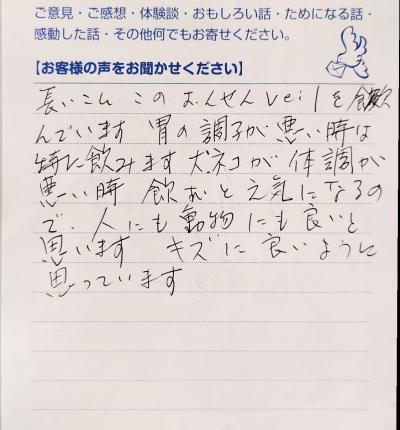 ご意見・ご感想・体験談・おもしろい話・ためになる話・
感動した話・その他何でもお寄せください。
【お客様の声をお聞かせください】
長いこん このおんせんveilを飲
んでいます 胃の調子が悪い時は
特に飲みます 犬ネコが体調が
悪い時 飲むと元気になるの
で、人にも動物にも良いと
思います キズに良いように
思っています